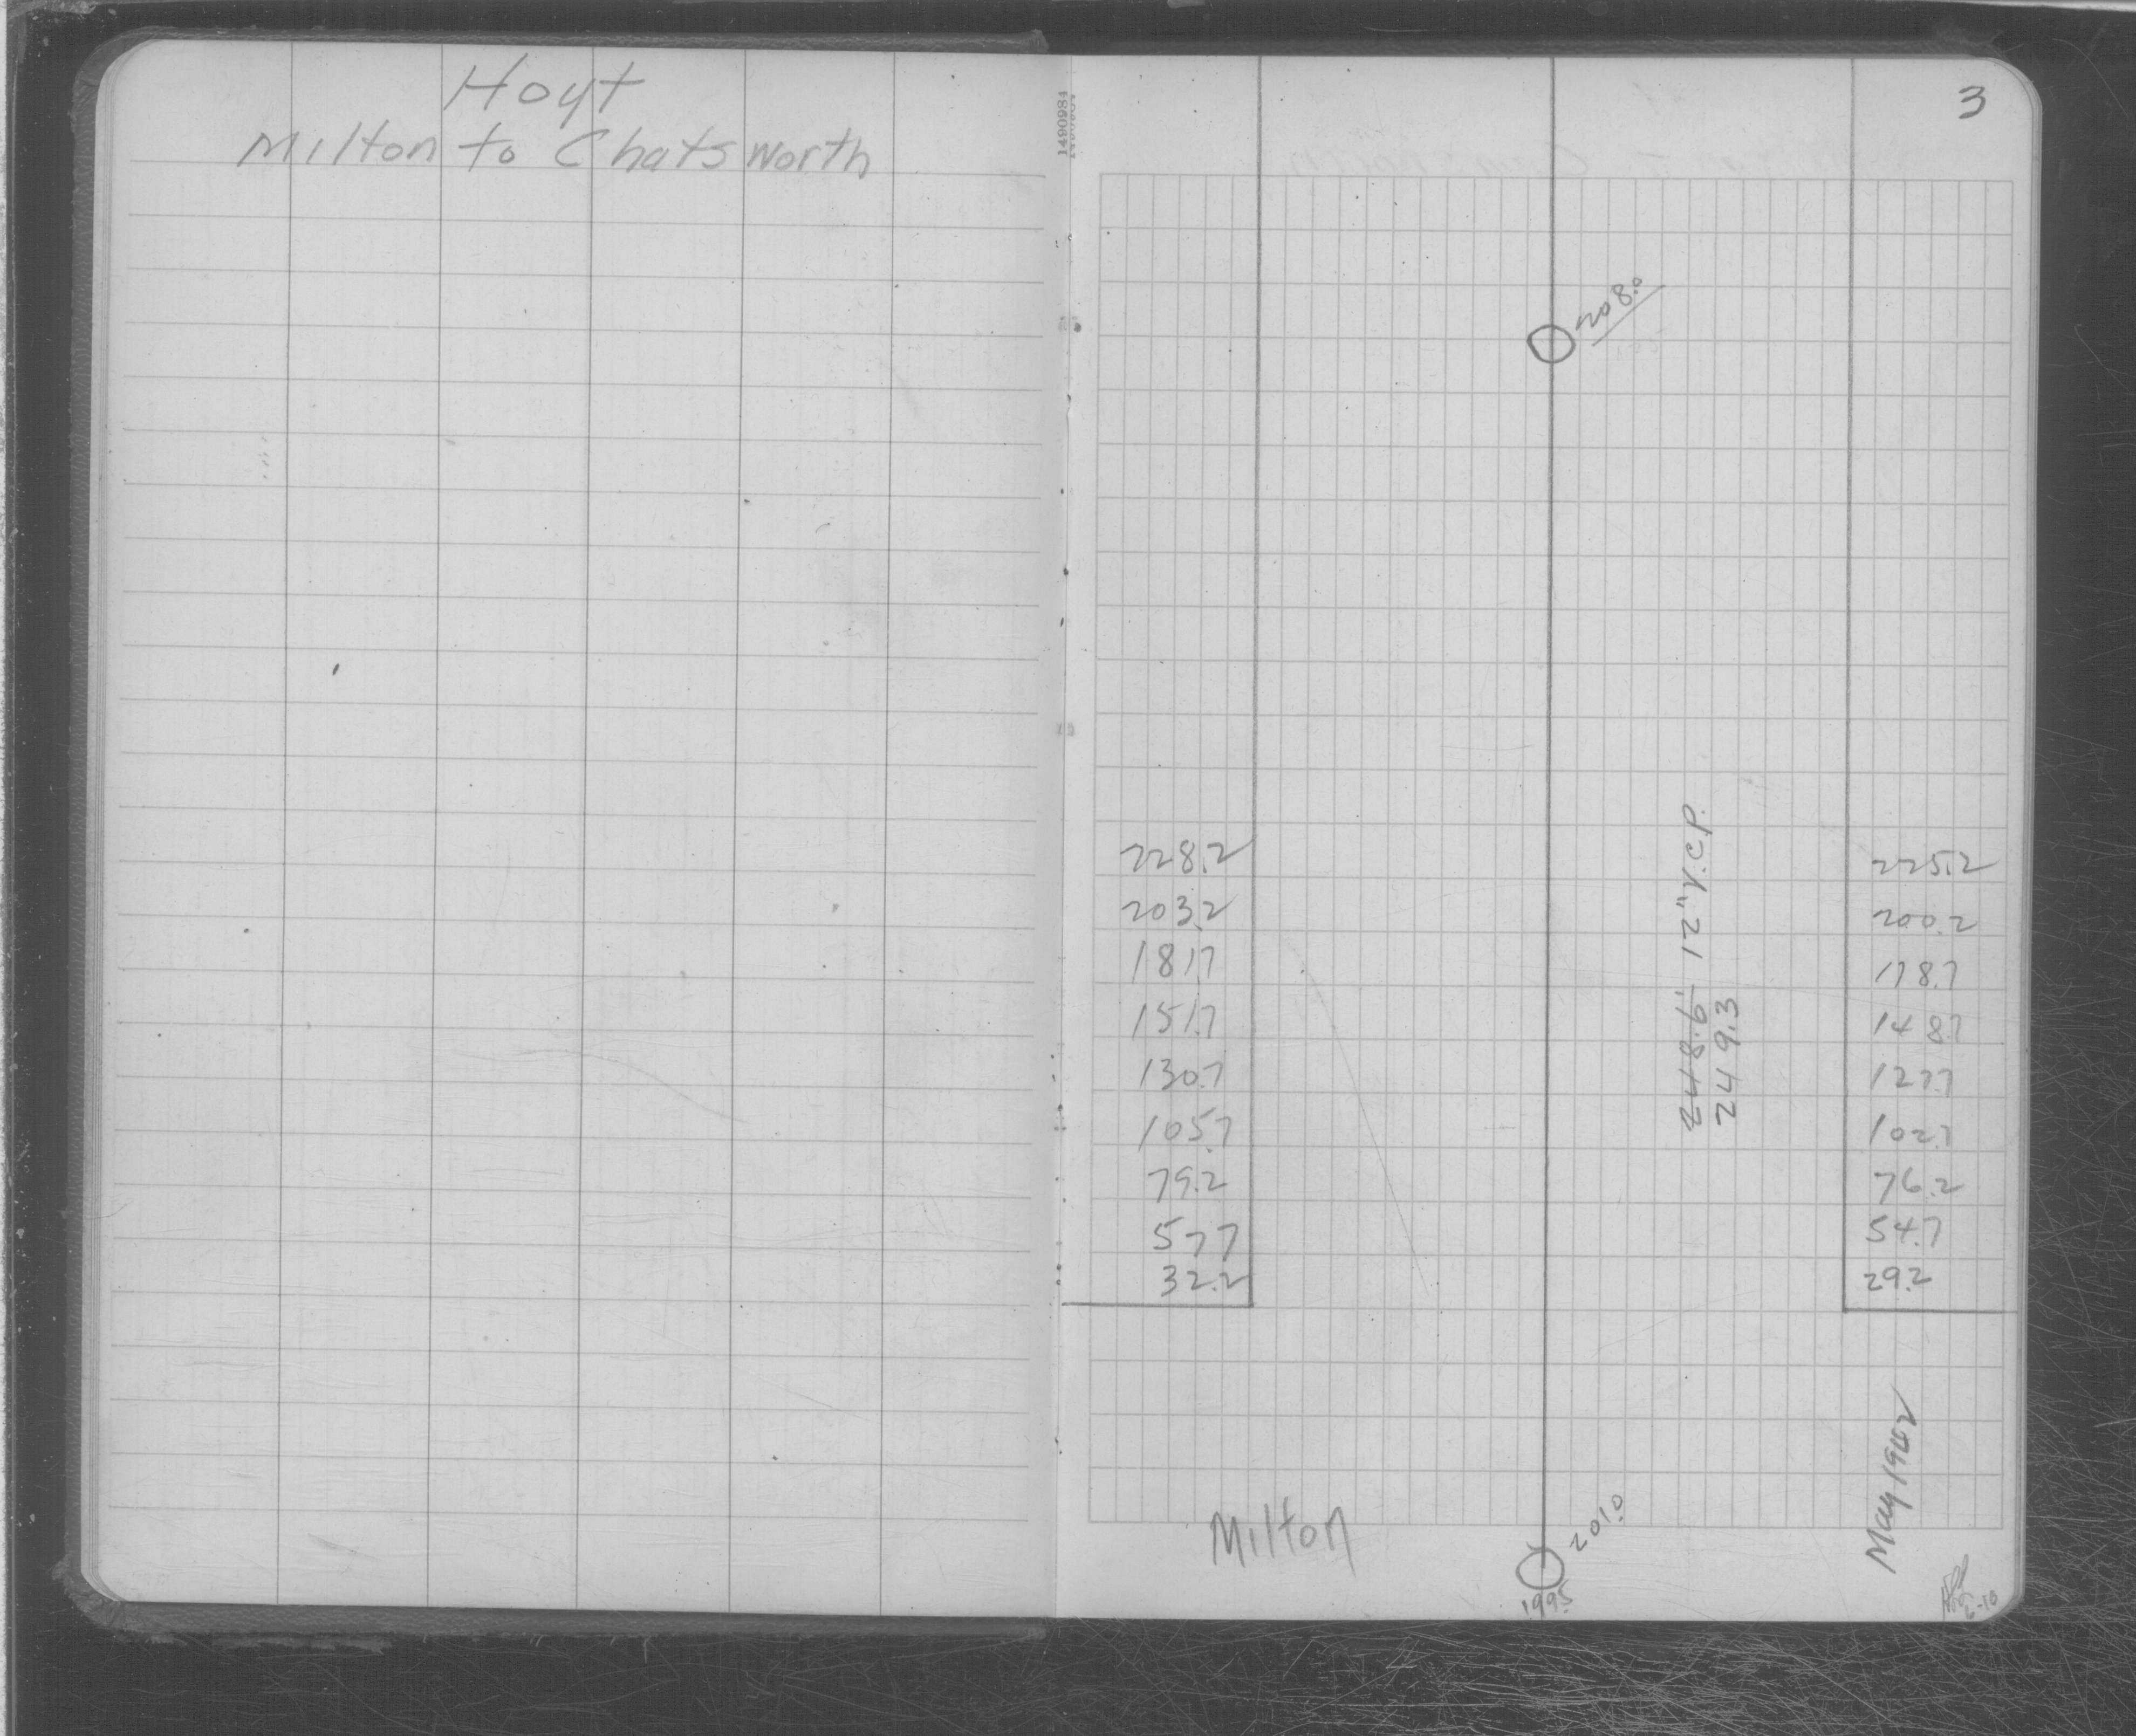 Hoyt
Milton to Chatsworth
3
1490984
208.0
12" V.C.P.
248.6'
249.3
228.2
203.2
181.7
151.7
130.7
105.7
79.2
57.7
32.2
225.2
200.2
178.7
148.7
127.7
102.7
76.2
54.7
29.2
Milton
201.0
199.5
6-10